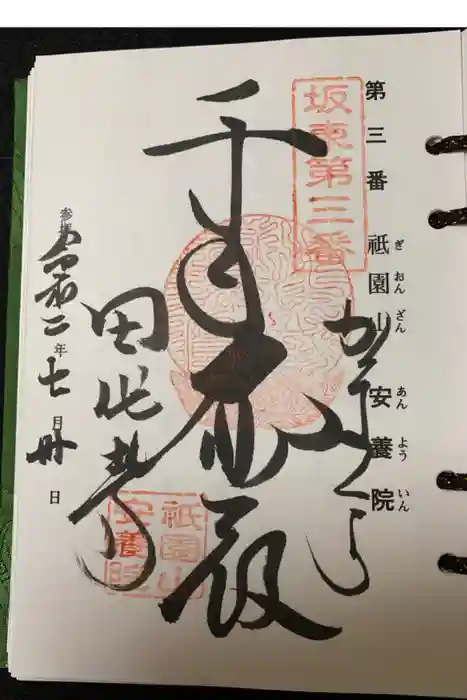 第三番 祇園山安養院
ぎおんざん あんよういん
坂東第三番
かまくら
千手
殿
田代
祇園山
安養院
参拝 令和二年七月 日